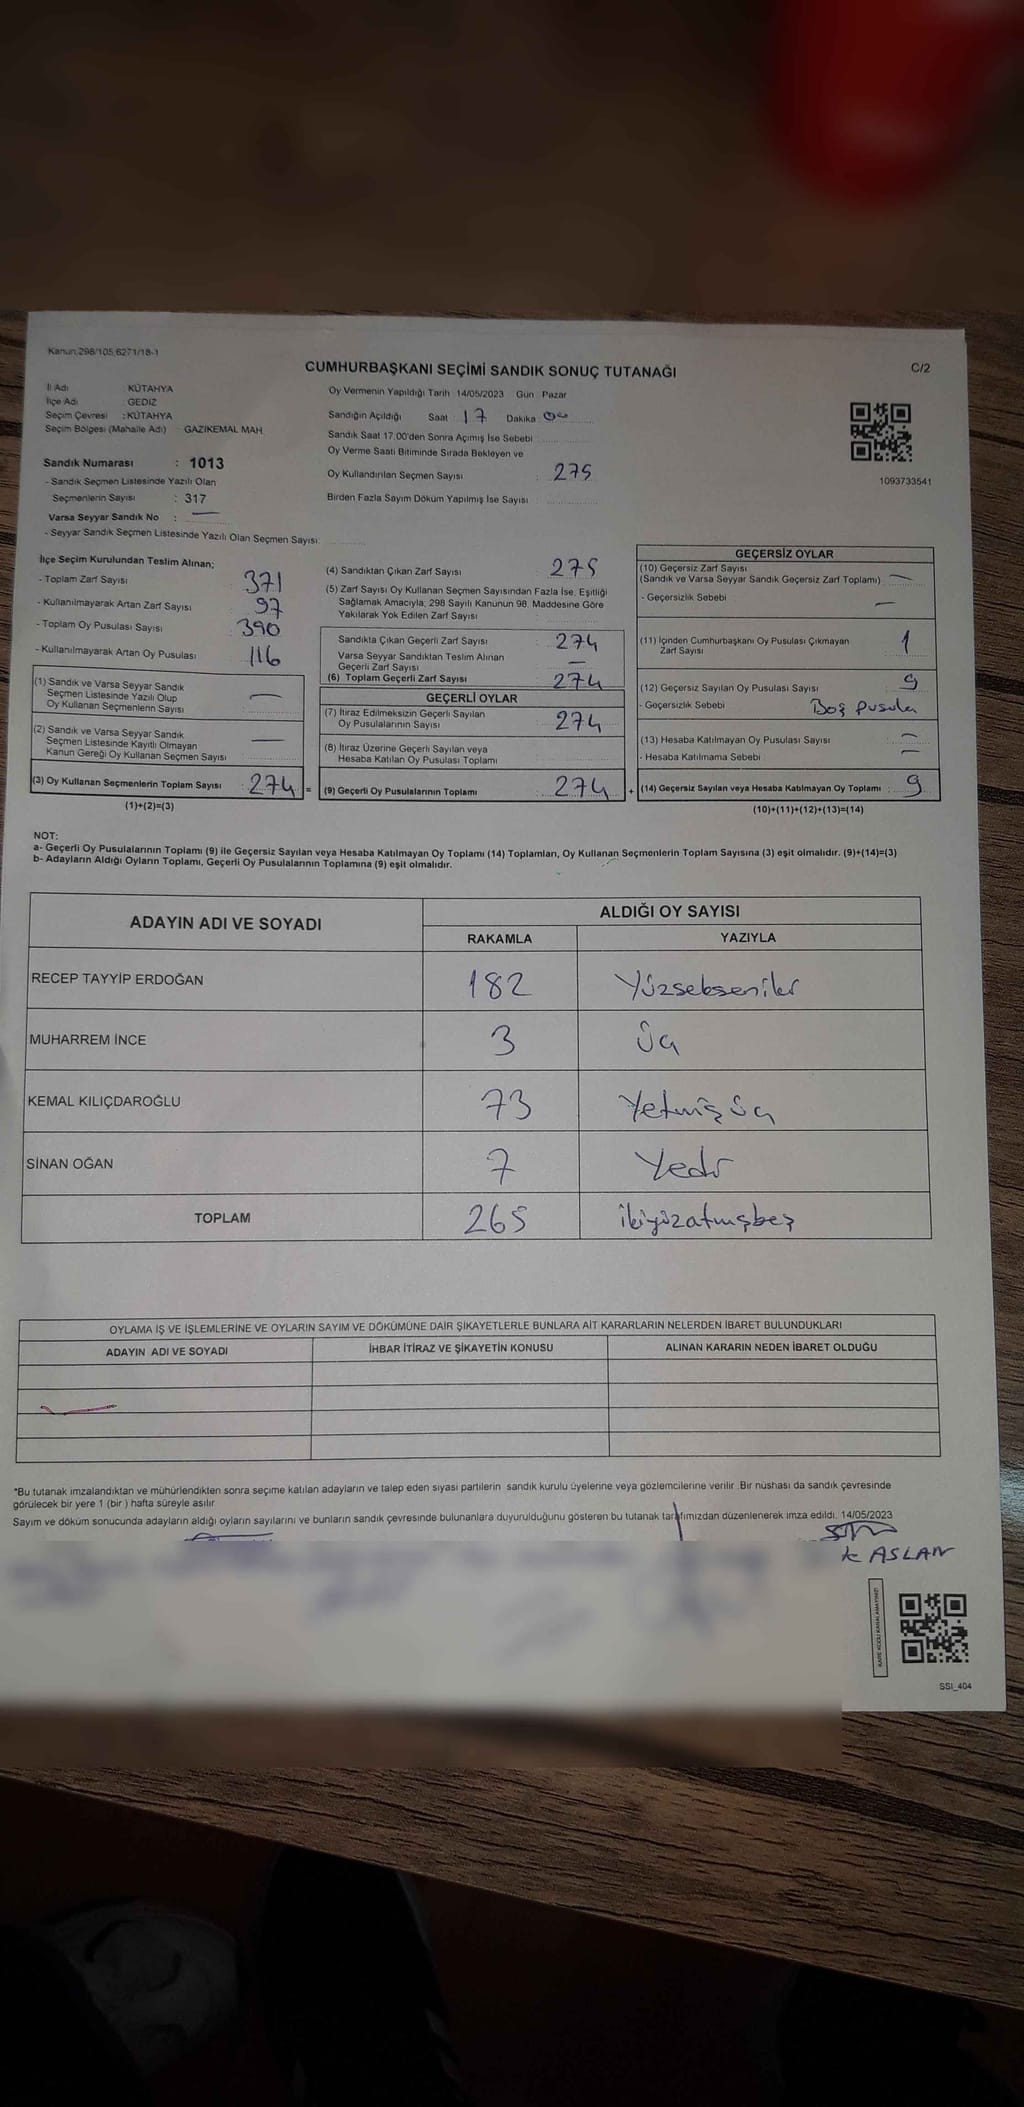 Kanun:298/105,6271/18-1
CUMHURBAŞKANI SEÇİMİ SANDIK SONUÇ TUTANAĞI
C/2
İl Adı KÜTAHYA
İlçe Adı GEDİZ
Seçim Çevresi : KÜTAHYA
Seçim Bölgesi (Mahalle Adı) GAZİKEMAL MAH.
Sandık Numarası : 1013
- Sandık Seçmen Listesinde Yazılı Olan
Seçmenlerin Sayısı : 317
Varsa Seyyar Sandık No : —
- Seyyar Sandık Seçmen Listesinde Yazılı Olan Seçmen Sayısı:
Oy Vermenin Yapıldığı Tarih 14/05/2023 Gün : Pazar
Sandığın Açıldığı Saat : 17 Dakika : 00
Sandık Saat 17:00'den Sonra Açımış İse Sebebi
Oy Verme Saati Bitiminde Sırada Bekleyen ve
Oy Kullandırılan Seçmen Sayısı : 275
Birden Fazla Sayım Döküm Yapılmış İse Sayısı
1093733541
İlçe Seçim Kurulundan Teslim Alınan;
- Toplam Zarf Sayısı 371
- Kullanılmayarak Artan Zarf Sayısı 97
- Toplam Oy Pusulası Sayısı 390
- Kullanılmayarak Artan Oy Pusulası 116
(1) Sandık ve Varsa Seyyar Sandık
Seçmen Listesinde Yazılı Olup
Oy Kullanan Seçmenlerin Sayısı —
(2) Sandık ve Varsa Seyyar Sandık
Seçmen Listesinde Kayıtlı Olmayan
Kanun Gereği Oy Kullanan Seçmen Sayısı —
(3) Oy Kullanan Seçmenlerin Toplam Sayısı 274 =
(1)+(2)=(3)
(4) Sandıktan Çıkan Zarf Sayısı 275
(5) Zarf Sayısı Oy Kullanan Seçmen Sayısından Fazla İse, Eşitliği
Sağlamak Amacıyla, 298 Sayılı Kanunun 98. Maddesine Göre
Yakılarak Yok Edilen Zarf Sayısı
Sandıkta Çıkan Geçerli Zarf Sayısı 274
Varsa Seyyar Sandıktan Teslim Alınan
Geçerli Zarf Sayısı —
(6) Toplam Geçerli Zarf Sayısı 274
GEÇERLİ OYLAR
(7) İtiraz Edilmeksizin Geçerli Sayılan
Oy Pusulalarının Sayısı 274
(8) İtiraz Üzerine Geçerli Sayılan veya
Hesaba Katılan Oy Pusulası Toplamı
(9) Geçerli Oy Pusulalarının Toplamı 274 +
GEÇERSİZ OYLAR
(10) Geçersiz Zarf Sayısı
(Sandık ve Varsa Seyyar Sandık Geçersiz Zarf Toplamı) —
- Geçersizlik Sebebi —
(11) İçinden Cumhurbaşkanı Oy Pusulası Çıkmayan
Zarf Sayısı 1
(12) Geçersiz Sayılan Oy Pusulası Sayısı 9
- Geçersizlik Sebebi Boş pusula
(13) Hesaba Katılmayan Oy Pusulası Sayısı —
- Hesaba Katılmama Sebebi —
(14) Geçersiz Sayılan veya Hesaba Katılmayan Oy Toplamı 9
(10)+(11)+(12)+(13)=(14)
NOT:
a- Geçerli Oy Pusulalarının Toplamı (9) ile Geçersiz Sayılan veya Hesaba Katılmayan Oy Toplamı (14) Toplamları, Oy Kullanan Seçmenlerin Toplam Sayısına (3) eşit olmalıdır. (9)+(14)=(3)
b- Adayların Aldığı Oyların Toplamı, Geçerli Oy Pusulalarının Toplamına (9) eşit olmalıdır.
ADAYIN ADI VE SOYADI
ALDIĞI OY SAYISI
RAKAMLA YAZIYLA
RECEP TAYYİP ERDOĞAN 182 Yüzsekseniki
MUHARREM İNCE 3 Üç
KEMAL KILIÇDAROĞLU 73 Yetmiş üç
SİNAN OĞAN 7 Yedi
TOPLAM 265 ikiyüzatmışbeş
OYLAMA İŞ VE İŞLEMLERİNE VE OYLARIN SAYIM VE DÖKÜMÜNE DAİR ŞİKAYETLERLE BUNLARA AİT KARARLARIN NELERDEN İBARET BULUNDUKLARI
ADAYIN ADI VE SOYADI İHBAR İTİRAZ VE ŞİKAYETİN KONUSU ALINAN KARARIN NEDEN İBARET OLDUĞU
*Bu tutanak imzalandıktan ve mühürlendikten sonra seçime katılan adayların ve talep eden siyasi partilerin sandık kurulu üyelerine veya gözlemcilerine verilir. Bir nüshası da sandık çevresinde
görülecek bir yere 1 (bir) hafta süreyle asılır
Sayım ve döküm sonucunda adayların aldığı oyların sayılarını ve bunların sandık çevresinde bulunanlara duyurulduğunu gösteren bu tutanak tarafımızdan düzenlenerek imza edildi. 14/05/2023
K ASLAN
KARE KODU KARALAMAYINIZ!
SSI_404